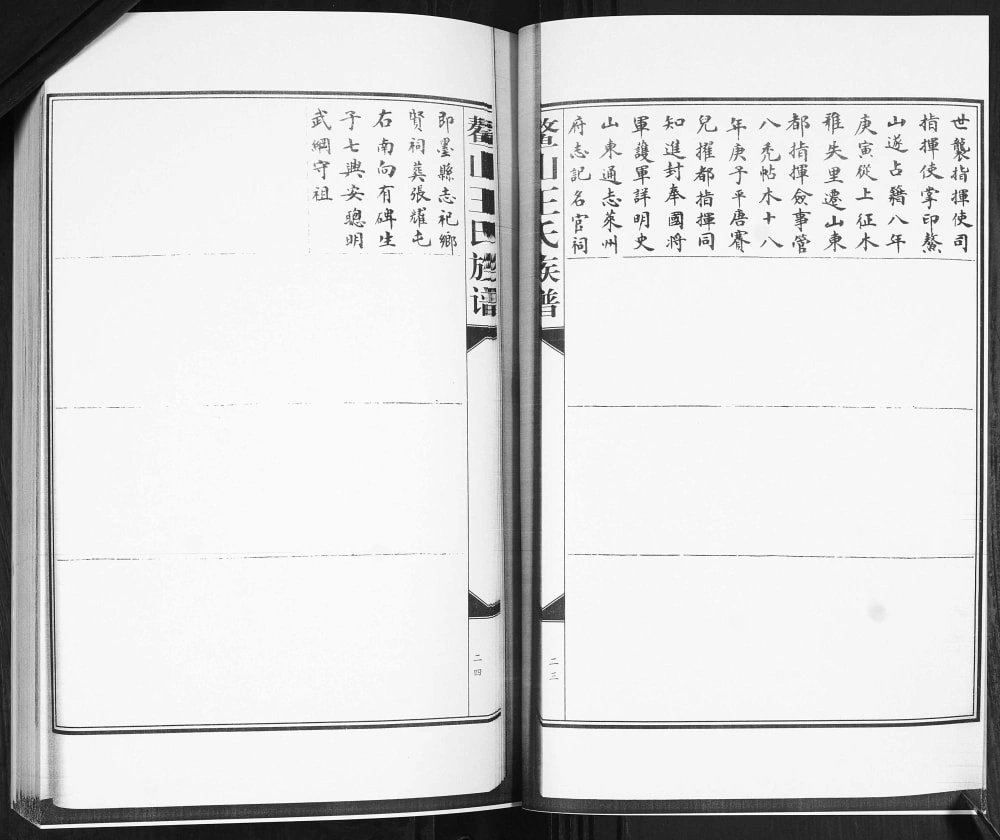 世襲指揮使司
指揮使掌印鰲
山遂占籍八年
庚寅從上征木
雅失里遷山東
都指揮僉事管
八禿帖木十八
年庚子平唐賽
兒擢都指揮同
知進封奉國將
軍護軍詳明史
山東通志萊州
府志記名宦祠
鰲山王氏族谱
二三
鰲山王氏族谱
二四
即墨縣志祀鄉
賢祠葬張耀屯
右南向有碑生
子七興安聰明
武綱守祖